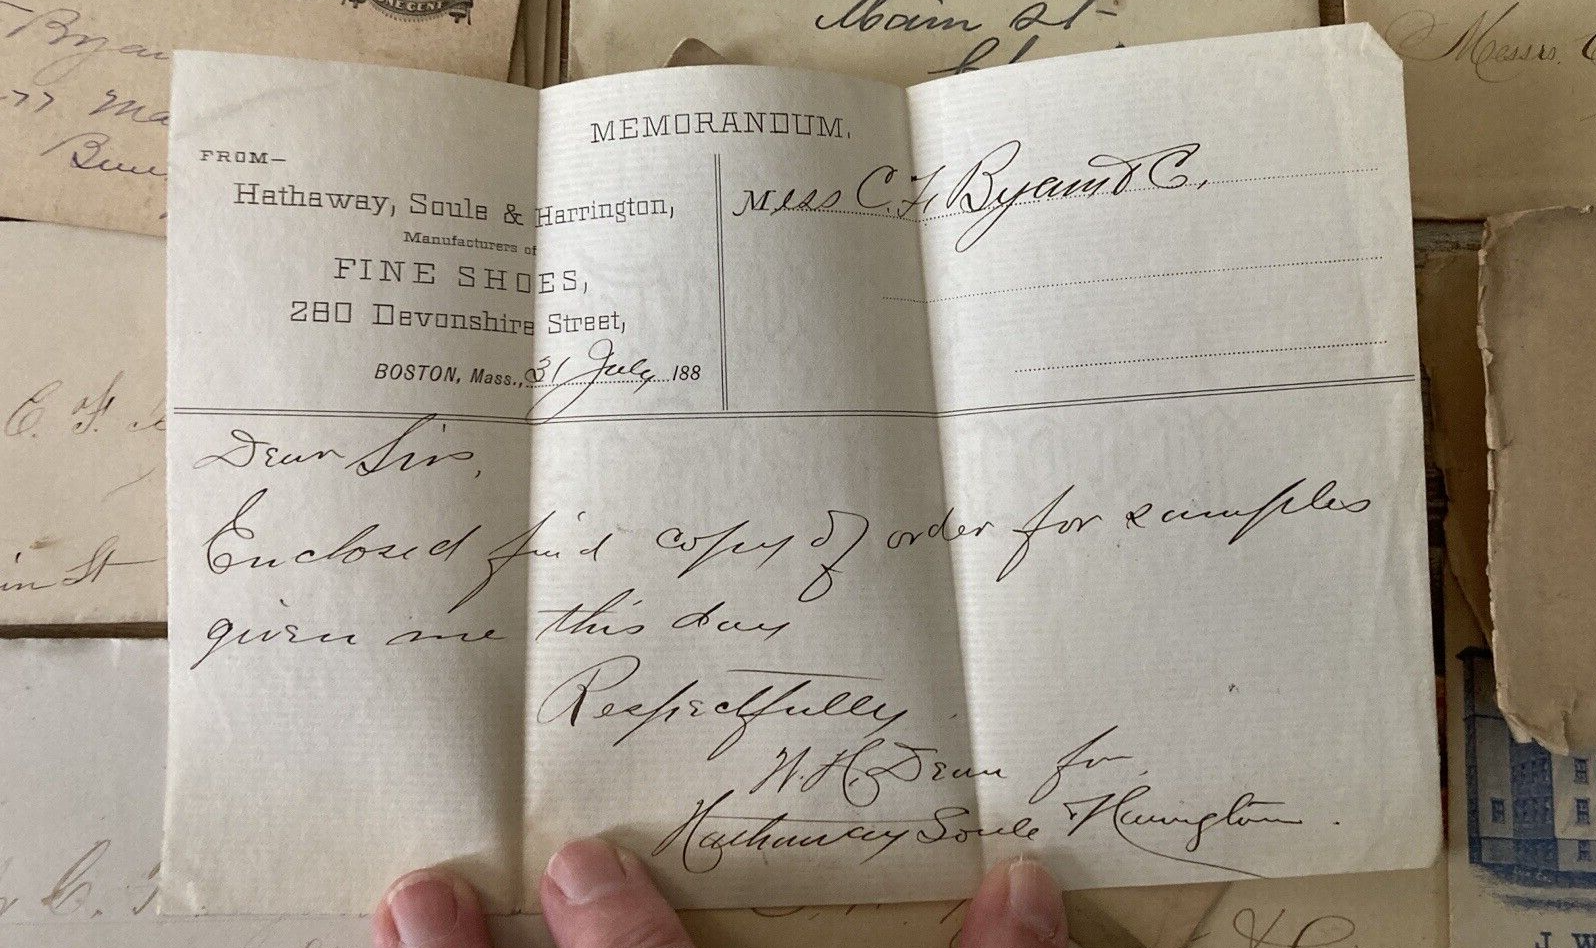 MEMORANDUM.
FROM—
Hathaway, Soule & Harrington,
Manufacturers of
FINE SHOES,
280 Devonshire Street,
BOSTON, Mass., 31 July 188
Mess C. F. Byant & C.
Dear Sirs,
Enclosed find copy of order for samples
given me this day
Respectfully
W. H. Dean for
Hathaway Soule & Harrington.
Main St
Messrs.
ONE CENT
Byan
77 Ma
C. F.
in St
C.
J. W